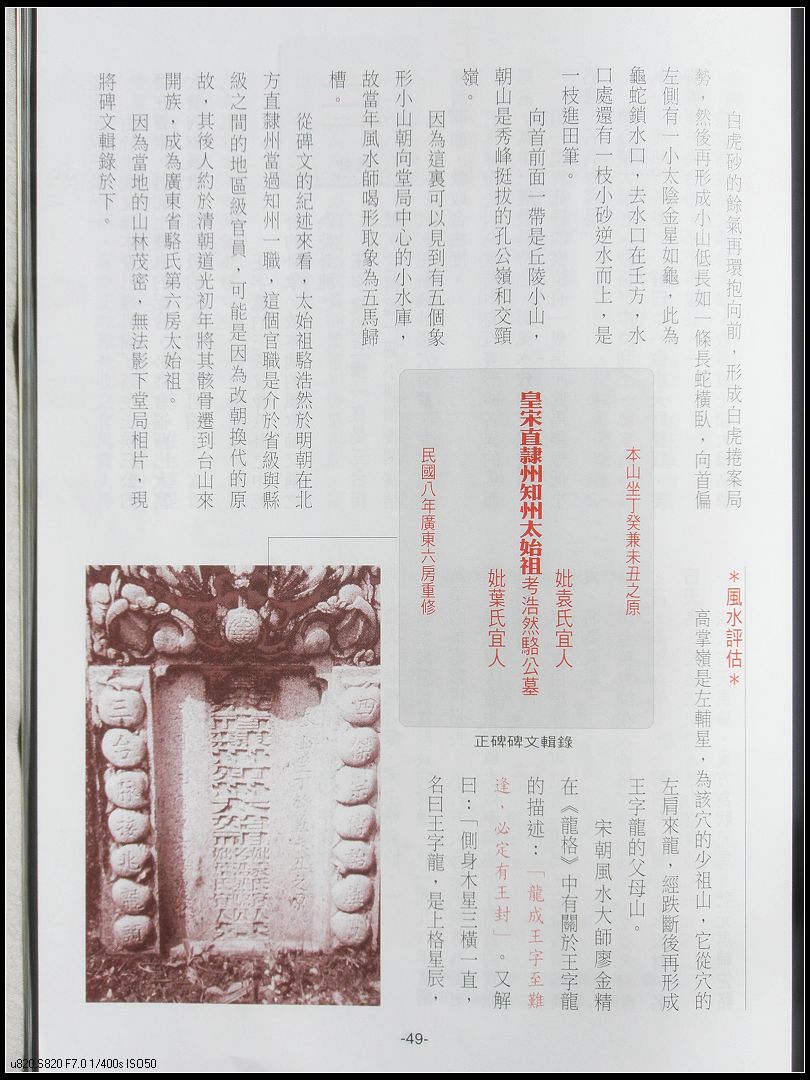 白虎砂的餘氣再環抱向前，形成白虎捲案局
勢，然後再形成小山低長如一條長蛇橫臥，向首偏
左側有一小太陰金星如龜，此為
龜蛇鎖水口，去水口在壬方，水
口處還有一枝小砂逆水而上，是
一枝進田筆。
向首前面一帶是丘陵小山，
朝山是秀峰挺拔的孔公嶺和交頸
嶺。
因為這裏可以見到有五個象
形小山朝向堂局中心的小水庫，
故當年風水師喝形取象為五馬歸
槽。
從碑文的紀述來看，太始祖駱浩然於明朝在北
方直隸州當過知州一職，這個官職是介於省級與縣
級之間的地區級官員，可能是因為改朝換代的原
故，其後人約於清朝道光初年將其骸骨遷到台山來
開族，成為廣東省駱氏第六房太始祖。
因為當地的山林茂密，無法影下堂局相片，現
將碑文輯錄於下。
本山坐丁癸兼未丑之原
妣袁氏宜人
皇宋直隸州知州太始祖考浩然駱公墓
妣葉氏宜人
民國八年廣東六房重修
正碑碑文輯錄
＊風水評估＊
高掌嶺是左輔星，為該穴的少祖山，它從穴的
左肩來龍，經跌斷後再形成
王字龍的父母山。
宋朝風水大師廖金精
在《龍格》中有關於王字龍
的描述：「龍成王字至難
逢，必定有王封」。又解
曰：「側身木星三橫一直，
名曰王字龍，是上格星辰，
-49-
u820,S820 F7.0 1/400s ISO50